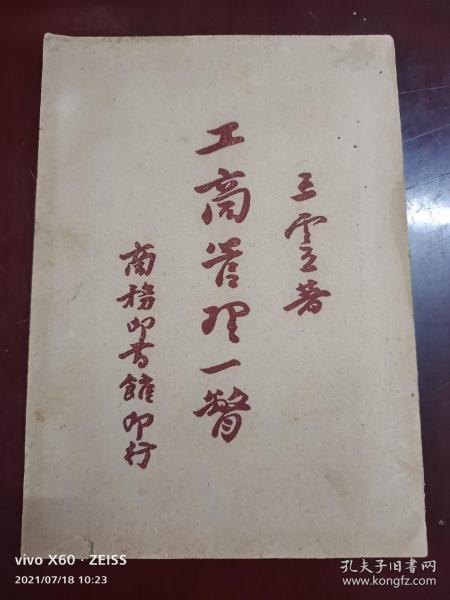 王云五著
工商管理一瞥
商務印書館印行
vivo X60 · ZEISS
2021/07/18 10:23
孔夫子旧书网
www.kongfz.com